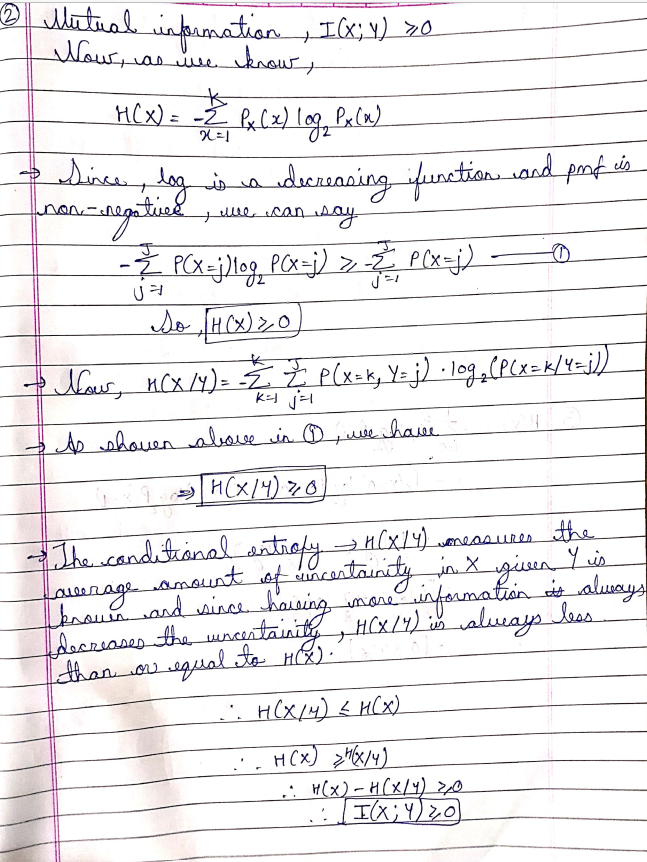 ② Mutual information , I(X; Y) ≥0
Now, as we know,
H(X) = -∑_{x=1}^{K} Pₓ(x) log₂ Pₓ(x)
→ Since, log is a decreasing function and pmf is
non-negative , we can say
-∑_{j=1}^{J} P(X=j)log₂ P(X=j) ≥ -∑_{j=1}^{J} P(X=j) — ①
So, H(X) ≥ 0
→ Now, H(X/Y) = -∑_{K=1}^{K} ∑_{j=1}^{J} P(X=K, Y=j) · log₂(P(X=K/Y=j))
→ As shown above in ①, we have
⇒ H(X/Y) ≥ 0
→ The conditional entropy → H(X/Y) measures the
average amount of uncertainity in X given Y is
known and since having more information is always
decreases the uncertainity , H(X/Y) is always less
than or equal to H(X).
∴ H(X/Y) ≤ H(X)
∴ H(X) ≥ H(X/Y)
∴ H(X) - H(X/Y) ≥0
∴ I(X; Y) ≥0